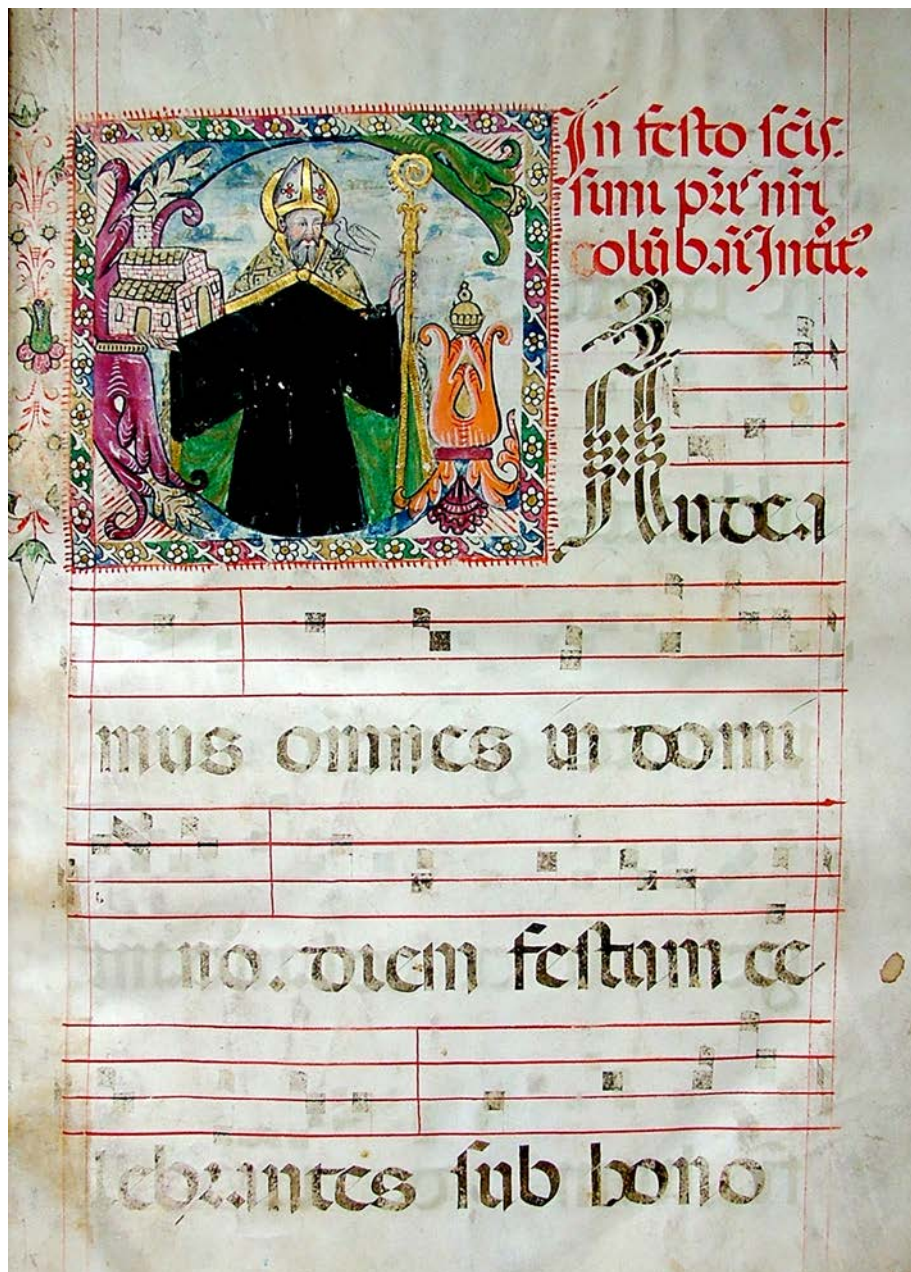 In festo scīs-
simi pr̄is n̄ri
colūbani Introit᷎.
Audea
mus omnes in domi
no. diem festum ce
lebrantes sub hono